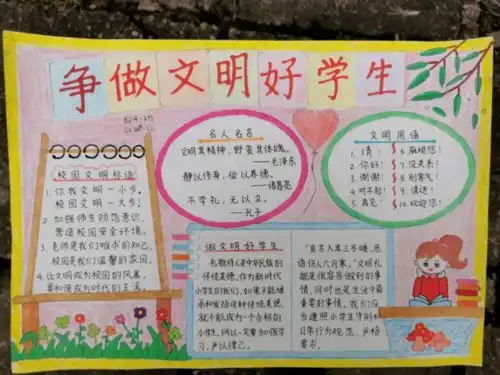 争做文明好学生
校园文明标语
1. 你我文明一小步,
校园文明一大步!
2. 加强师生防范意识,
营造校园安全环境。
3. 老师是我们难忘的知己,
校园是我们温馨的家园。
4. 让文明成为校园的风景,
要和谐成为时代的主流。
名人名言
文明其精神,野蛮其体魄。
——毛泽东
静以修身,俭以养德。
——诸葛亮
不学礼,无以立。
——孔子
文明用语
1. 请!
2. 你好!
3. 谢谢!
4. 对不起!
5. 再见!
6. 麻烦您!
7. 没关系!
8. 别客气!
9. 请进!
10. 欢迎您!
做文明好学生
礼貌待人是中华民族的
传统美德,作为新时代
小学生的我们,如果不能继
承和发扬这种传统美德,
就不能成为一个合格的
小学生,所以一定要加强学
习,严以律己。
"良言入耳三冬暖,恶
语伤人六月寒,"文明礼
貌是很容易做到的事
情,同时也是生活中最
重要的事情,我们应
当遵照小学生守则和
日常行为规范,严格
要求。